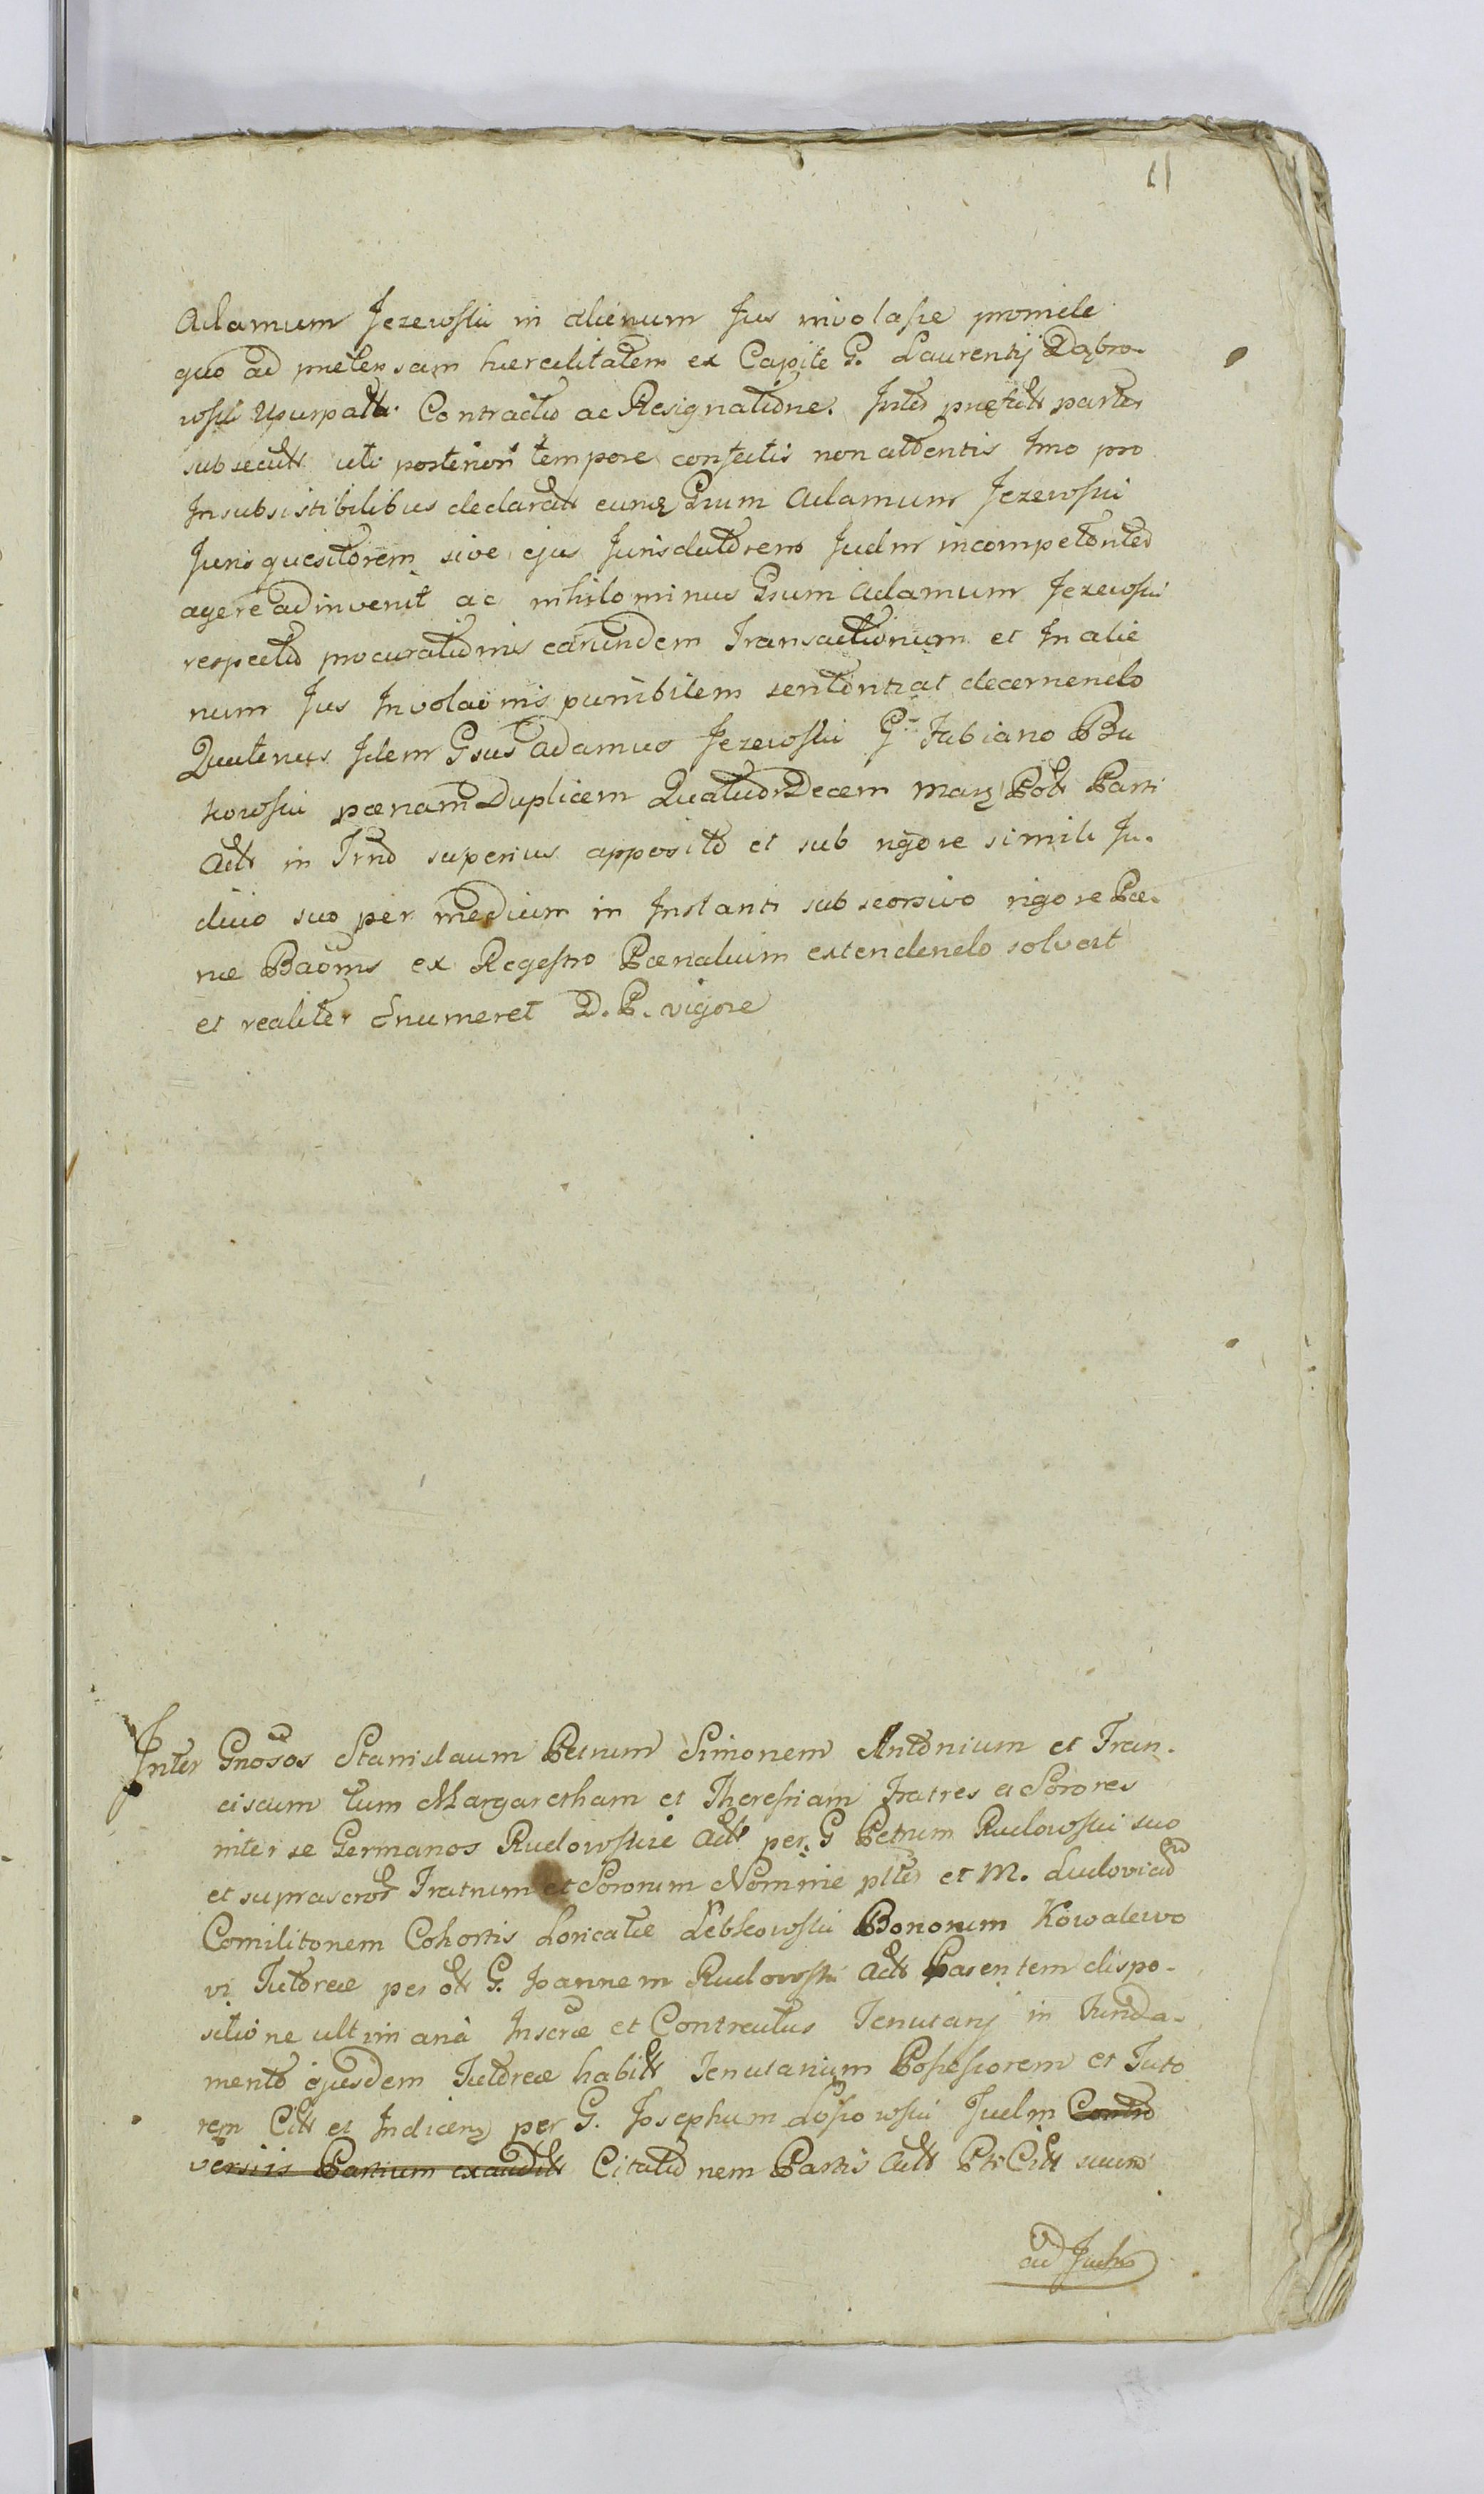 11
Adamum Jezewski in alienum Jus involasse proinde
quo ad prætensam hæreditatem ex Capite G. Laurentij Dąbro-
wski Usurpatt. Contractu ac Resignatione. Inter præfatt partes
subsecutt uti posteriori tempore confectis non attentis Imo pro
Insubsistibilibus declaratt eunq Gsum Adamum Jezewski
Juris quæsitorem sive ejus Jurisdatorem Judm incompetenter
agere adinvenit ac nihilominus Gsum Adamum Jezewski
respectu procurationis earundem Transactionum et In alie
num Jus Involaonis punibilem sententiat decernendo
Quatenus Idem Gsus Adamus Jezewski G. Fabiano Bu
kowski pœnam Duplicem Quatuor Decem Marq Polt Parti
Actt in Trno superius apposito et sub rigore simili Ju-
dicio suo per medium in Instanti sub seorsivo rigore Pœ-
næ Baoms ex Regestro Pœnalium extendendo solvat
et realiter Enumeret D. P. vigore
Inter Gnosos Stanislaum Petrum Simonem Antonium et Fran-
ciscum tum Margaretham et Theresiam Fratres et Sorores
inter se Germanos Rudowskie Actt per G Petrum Rudowski suo
et suprascrott Fratrum et Sororum Nomine pltes et M. Ludovicum
Comilitonem Cohortis Loricatæ Łebkowski Bonorum Kowalewo
vi Tutoreæ per ott G. Joannem Rudowski Actt Parentem dispo-
sitione ultimaria Inscræ et Contractus Tenutarij in Funda-
mento ejusdem Tutoreæ habitt Tenutarium Possessorem et Tuto
rem Citt et Indicem per G. Josephum Lossowski Judm Contro
versiis Partium exauditt Citationem Partis Actt Pti Citt suum
ad Judm